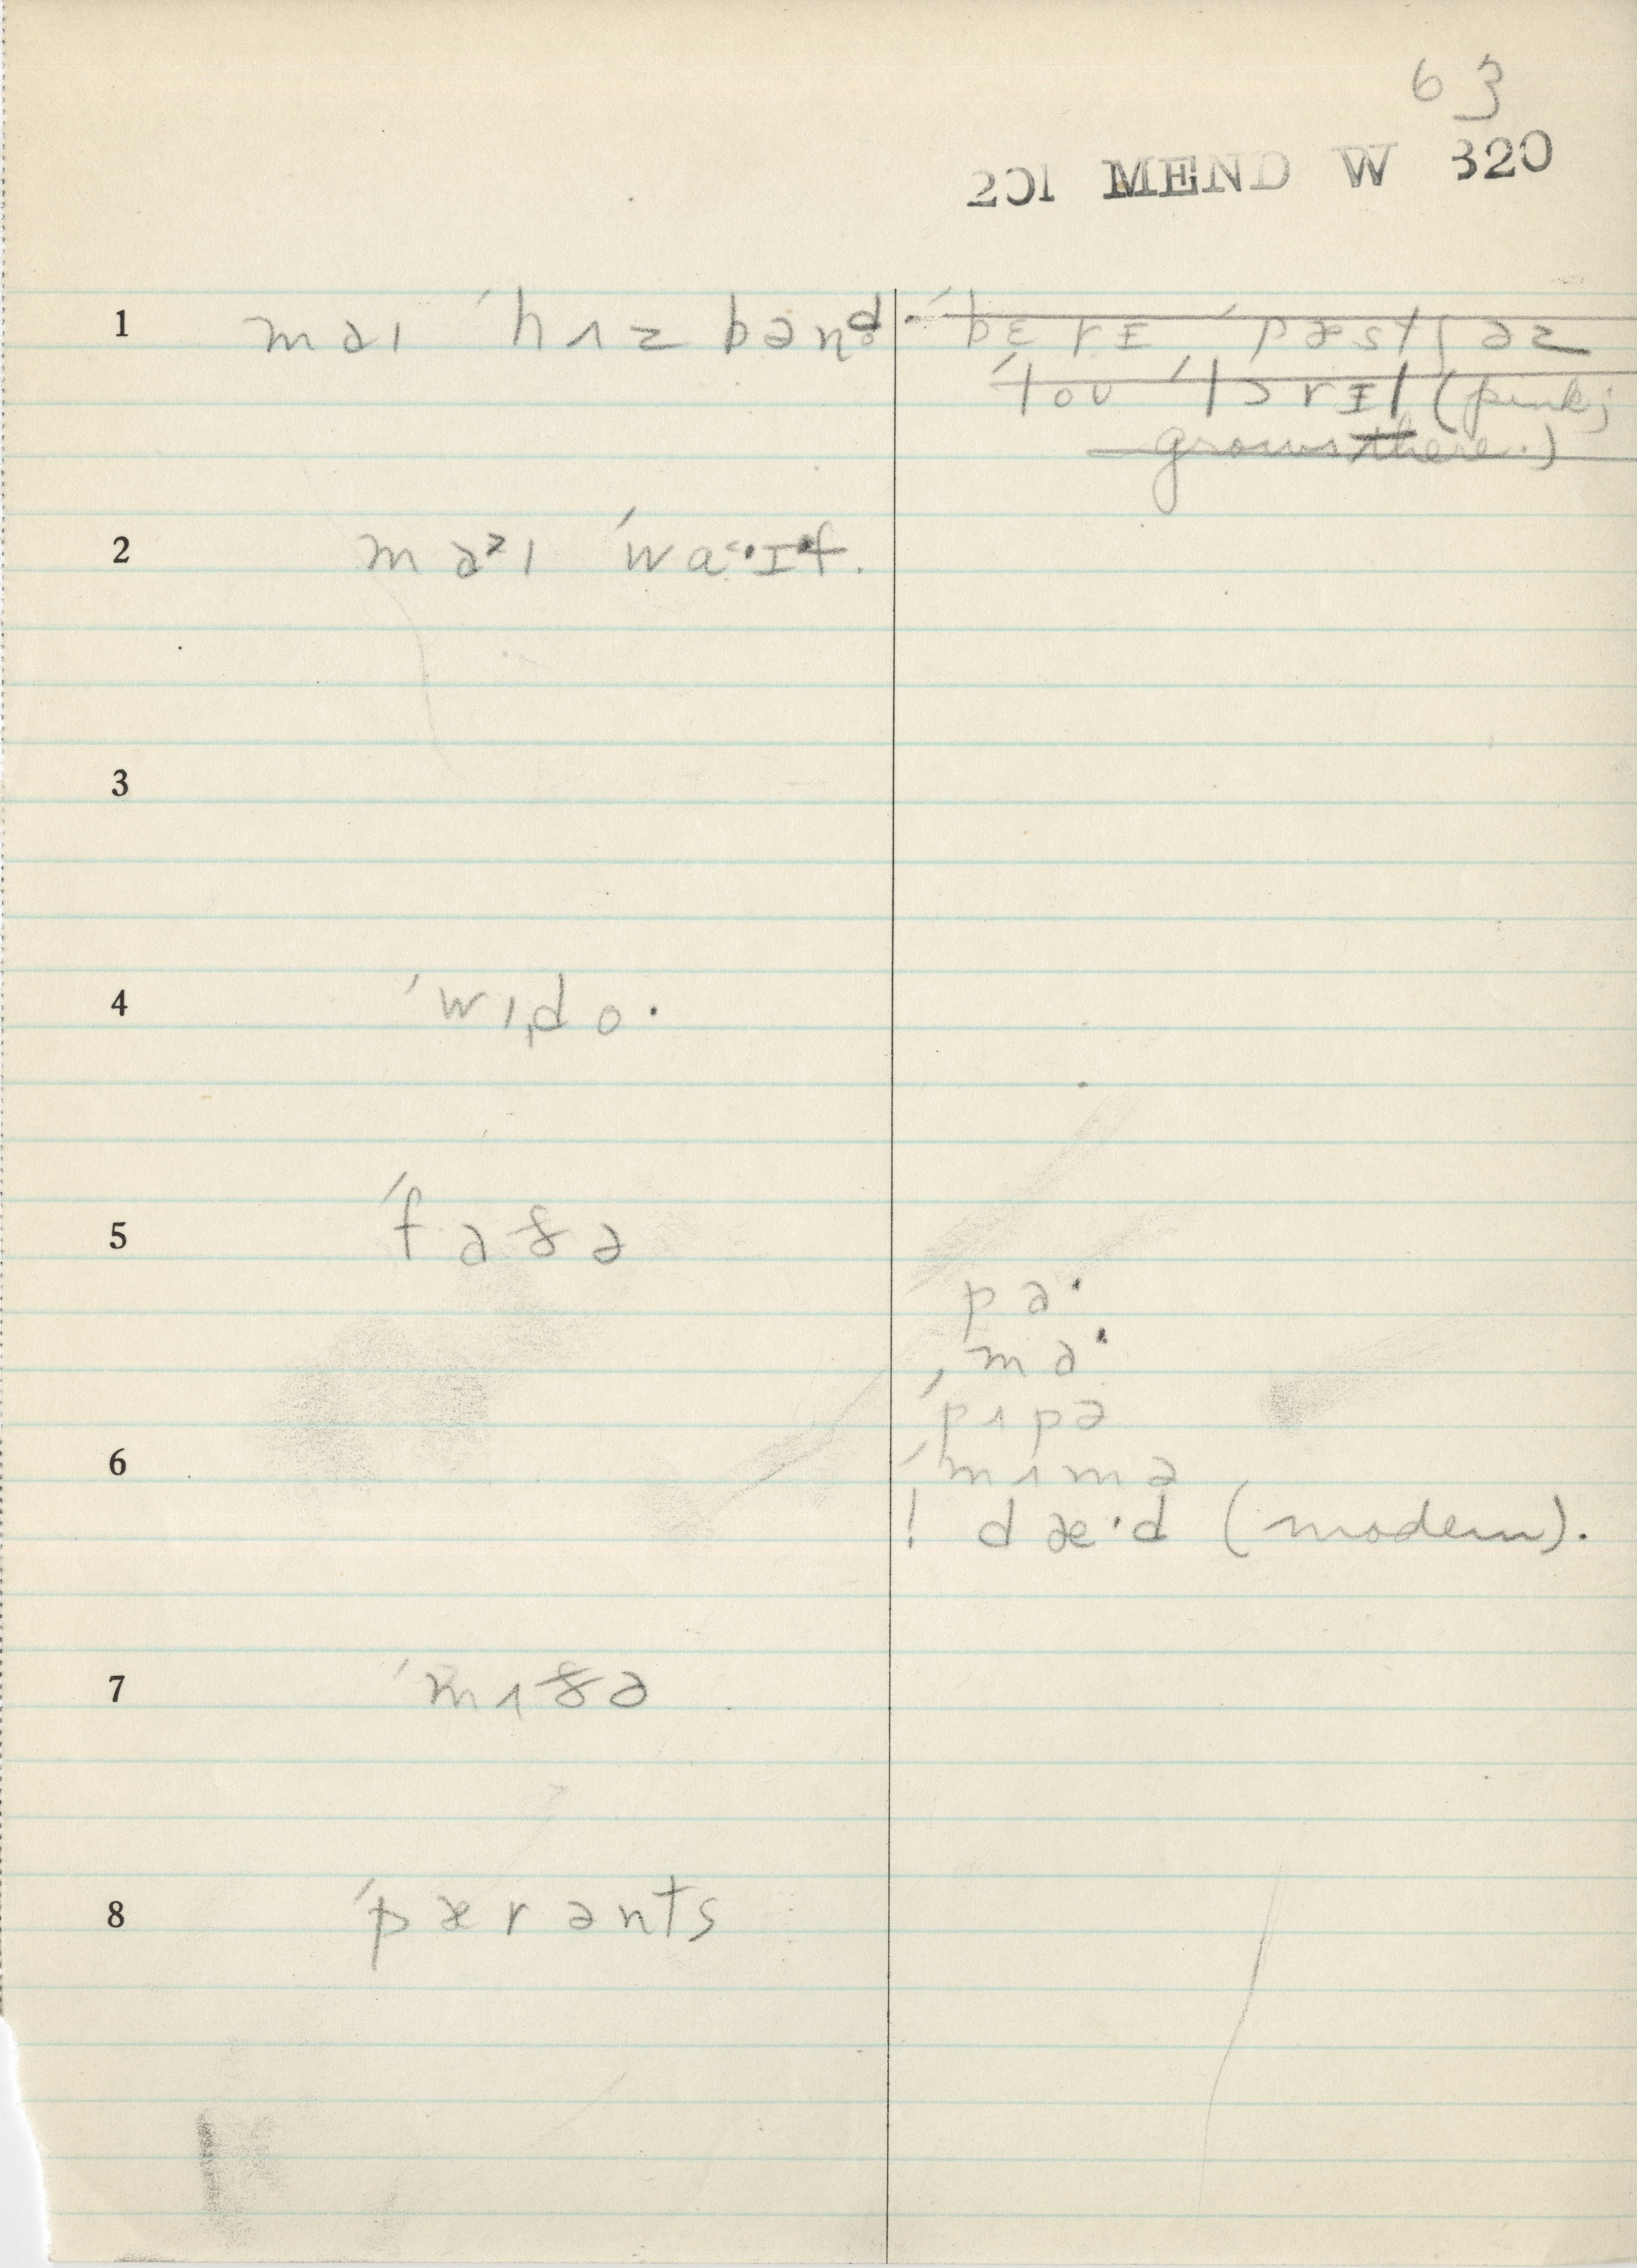 63
201 MEND W 320
1 məɪ ˈhʌzbənd
ˈbɛrɪ ˈpæstʃəz
ˈloʊ ˈlɔrɪl (pink;
grows there.)
2 məᶾɪ ˈwaˑɪf.
3
4 ˈwɪd̩oˑ
5 ˈfaðə
pəˑ
ˌməˑ
ˈpʌpə
6 ˈmʌmə
! dæˑd (modern).
7 ˈmʌðə
8 ˈpærənts